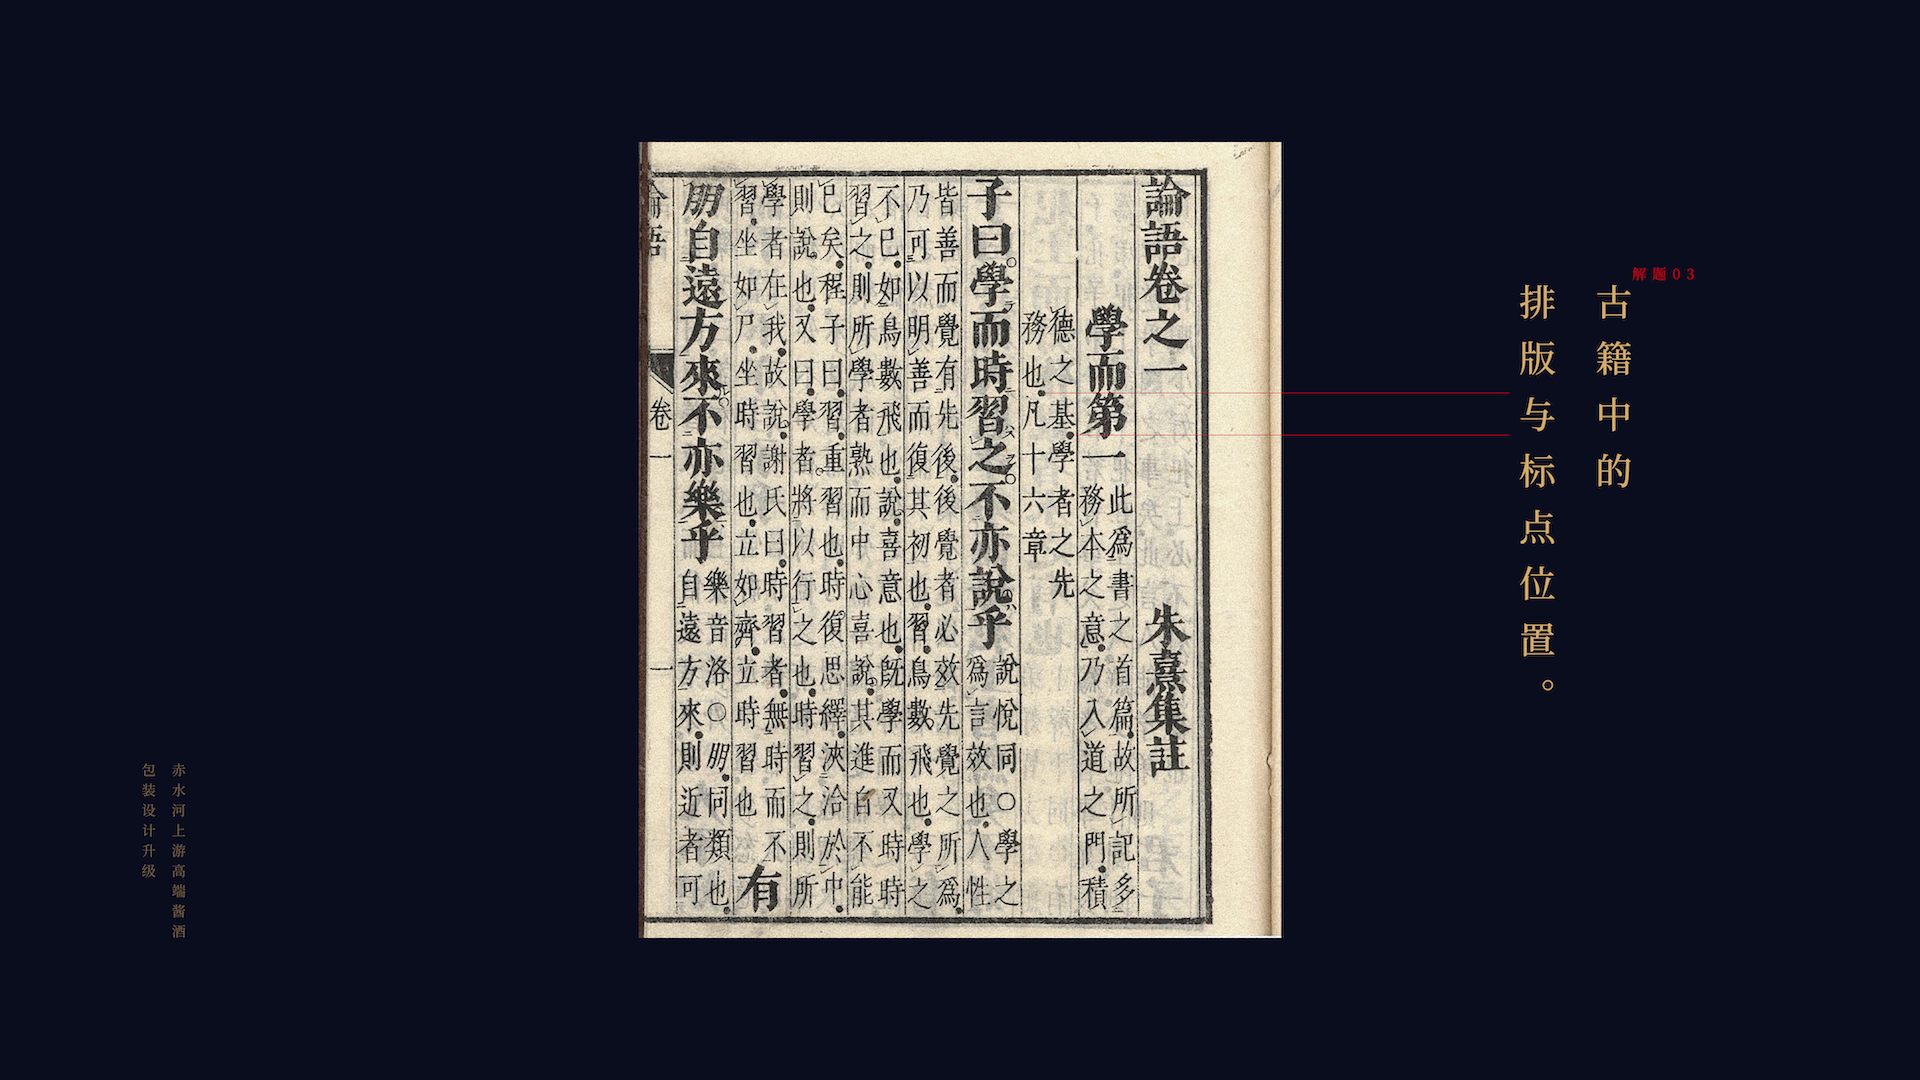 解题03
古籍中的
排版与标点位置。
論語卷之一 朱熹集註
學而第一
此爲書之首篇故所記多
務本之意乃入道之門積
德之基學者之先
務也凡十六章
子曰學而時習之不亦說乎
說悅同○學之
爲言效也人性
皆善而覺有先後後覺者必效先覺之所爲
乃可以明善而復其初也習鳥數飛也學之
不已如鳥數飛也說喜意也旣學而又時時
習之則所學者熟而中心喜說其進自不能
已矣程子曰習重習也時復思繹浹洽於中
則說也又曰學者將以行之也時習之則所
學者在我故說謝氏曰時習者無時而不
習坐如尸坐時習也立如齊立時習也
有
朋自遠方來不亦樂乎
樂音洛○朋同類也
自遠方來則近者可
論語 卷一 一
赤水河上游高端酱酒
包装设计升级